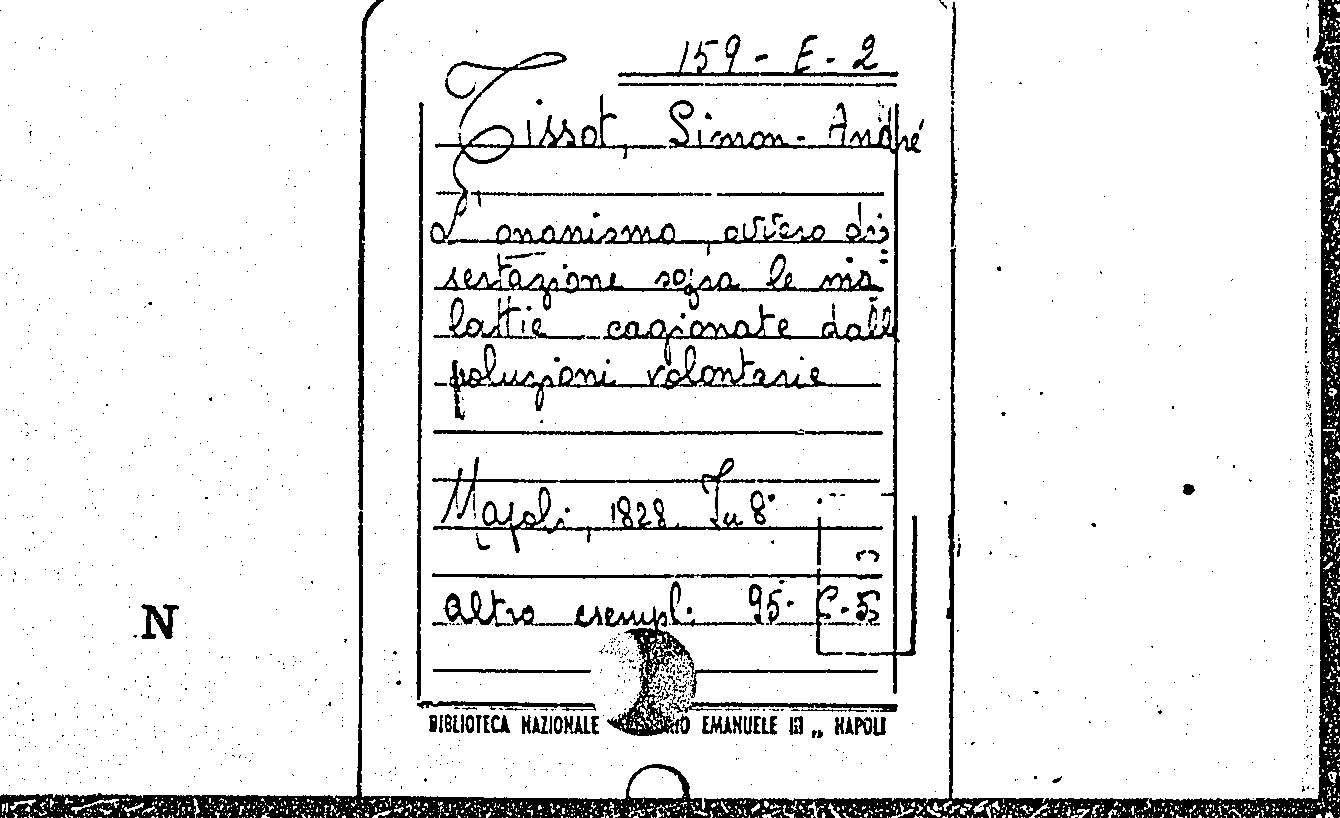 159 - E - 2
Tissot, Simon-André
L'onanismo, ovvero dis=
sertazione sopra le ma=
lattie cagionate dalle
poluzioni volontarie
Napoli, 1828. In 8°
altro esempl: 95- C-55
N
BIBLIOTECA NAZIONALE EMANUELE III „ NAPOLI